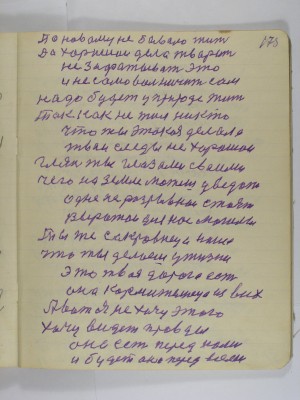 По новому не бывало жит
Да хорошои дела творит
не Задатыват Это
и не самовольничит сам
175
надо будет у природе жит
так как не жил никто
что ты этакая делала
твои следы не хорошои
глян ты глазами своими
чего на Земле можеш увидет
одне не розрывнои стоит
впереди для нас могила
Ты же сокровеща наша
что ты делаеш у жизни
Это твоя дорога ест
она кормителница их всех
А вот я не хочу этого
хочу видет правды
она ест перед нами
и будет она перед всеми